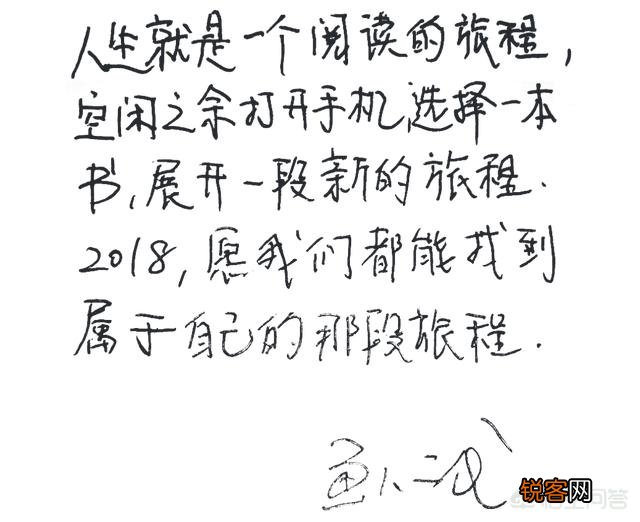 人生就是一个阅读的旅程，
空闲之余打开手机,选择一本
书,展开一段新的旅程.
2018,愿我们都能找到
属于自己的那段旅程.
鱼人二代
锐客网